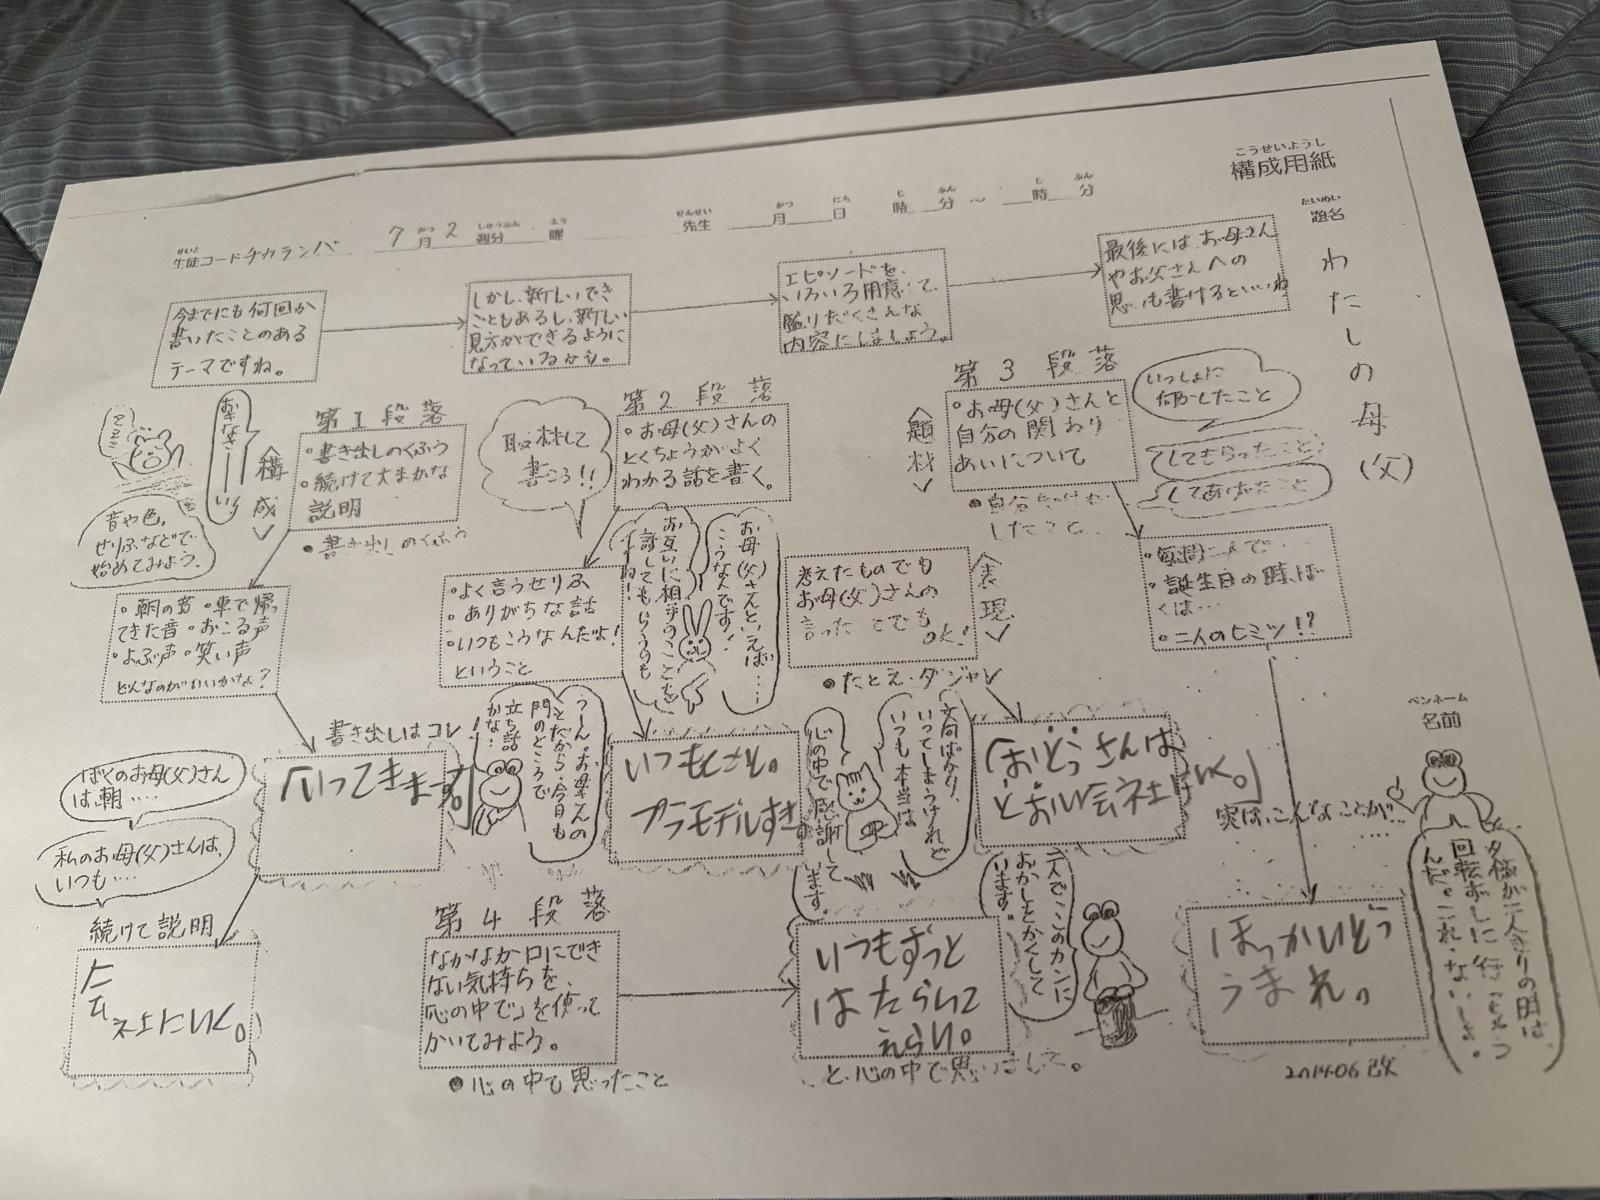 こうせいようし
構成用紙
だいめい
題名 わたしの母(父)
ペンネーム
名前
せいと
生徒コードチカランバ
7月2週分 曜
がつ しゅうぶん よう
せんせい
先生
月 日 時 分 ～ 時 分
がつ にち じ ふん じ ふん
今までにも何回か
書いたことのある
テーマですね。
しかし、新しいでき
ごともあるし、新しい
見方ができるように
なっているかも。
エピソードを、
いろいろ用意して、
盛りだくさんな
内容にしましょう。
最後には、お母さん
やお父さんへの
思いも書けるといいね
第1段落
〈構成〉
・書き出しのくふう
・続けて大まかな
説明
●書き出しのくふう
音や色、
せりふなどで
始めてみよう。
・朝の音・車で帰っ
てきた音・おこる声
・よぶ声・笑い声
どんなのがいいかな?
書き出しはコレ!
「いってきます。」
ぼくのお母(父)さん
は、朝‥‥
私のお母(父)さんは、
いつも‥‥
続けて説明
社にいく。
第2段落
・お母(父)さんの
とくちょうがよく
わかる話を書く。
取材して
書こう!!
・よく言うせりふ
・ありがちな話
・いつもこうなんだよ!
ということ
お母(父)さんといえば‥‥
こうなんです!
お互いに相手のことを
話してもらうのも
うーん。お母さんの
ことだから、今日も
門のところで
立ち話
かな!
プラモデルすき
第3段落
〈題材〉
・お母(父)さんと
自分の関わり
あいについて
いっしょに
何かしたこと
してもらったこと
してあげたこと
・誕生日の時、ぼ
くは…
・二人のヒミツ!?
〈表現〉
考えたものでも
お母(父)さんの
言ったことでも
OK!
●たとえ、ダジャレ
「おとうさんは
とおい会社にいく。」
実は、こんなことが‥
ほっかいどう
うまれ。
第4段落
なかなか口にでき
ない気持ちを、
「心の中で」を使って
かいてみよう。
●心の中で思ったこと
文句ばかり、
いってしまうけれど
いつも本当は
心の中で感謝して
います。
いつもずっと
はたらいて
えらい。
と、心の中で思いました。
二人でこのカンに
おかしをかくして
います。
2014.06改